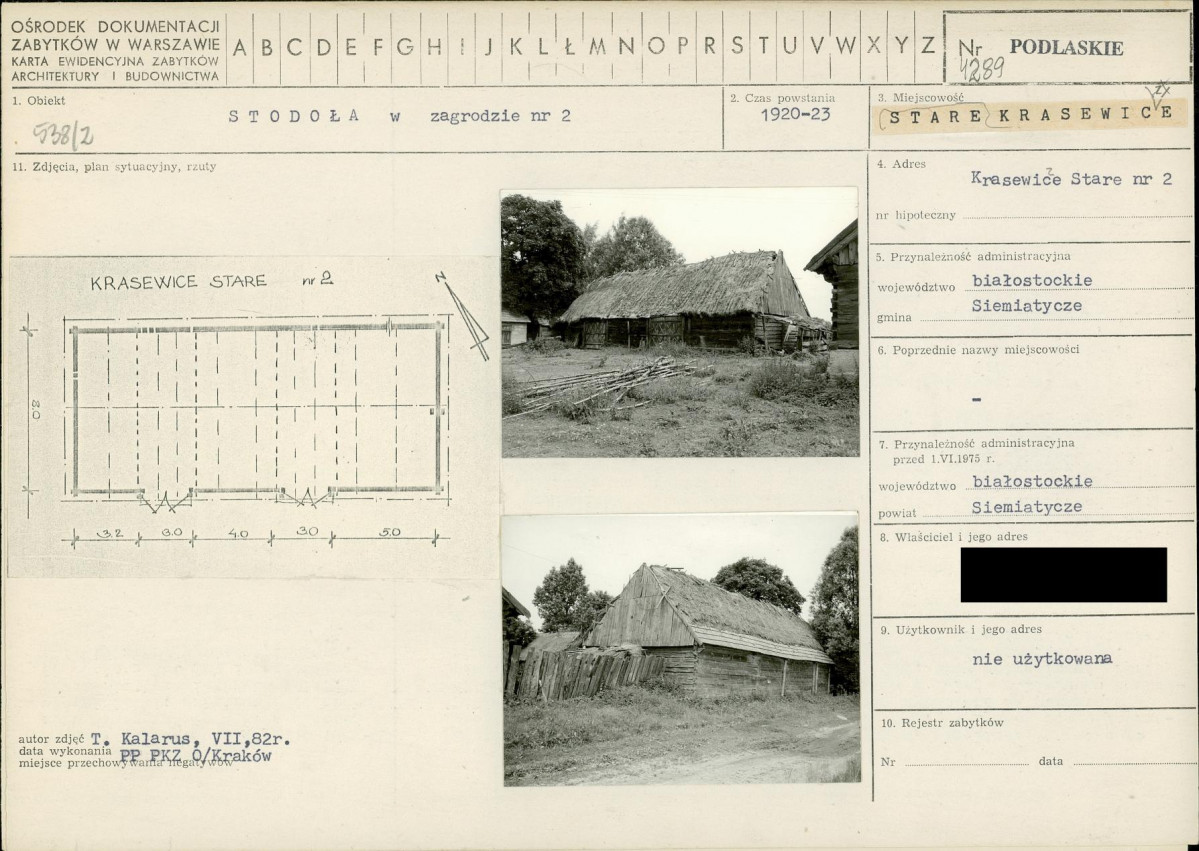 OŚRODEK DOKUMENTACJI
ZABYTKÓW W WARSZAWIE
KARTA EWIDENCYJNA ZABYTKÓW
ARCHITEKTURY I BUDOWNICTWA
A B C D E F G H I J K L Ł M N O P R S T U V W X Y Z
Nr PODLASKIE
4289
1. Obiekt
STODOŁA w zagrodzie nr 2
538/2
2. Czas powstania
1920-23
3. Miejscowość
STARE KRASEWICE
11. Zdjęcia, plan sytuacyjny, rzuty
KRASEWICE STARE nr 2
N
8.0
3.2 3.0 4.0 3.0 5.0
autor zdjęć T. Kalarus, VII,82r.
data wykonania PP PKZ O/Kraków
miejsce przechowywania negatywów
4. Adres
Krasewice Stare nr 2
nr hipoteczny
5. Przynależność administracyjna
województwo białostockie
gmina Siemiatycze
6. Poprzednie nazwy miejscowości
-
7. Przynależność administracyjna
przed 1.VI.1975 r.
województwo białostockie
powiat Siemiatycze
8. Właściciel i jego adres
9. Użytkownik i jego adres
nie użytkowana
10. Rejestr zabytków
Nr data